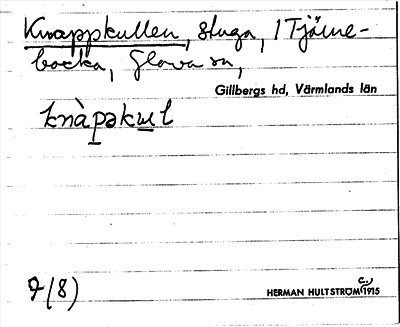 Knappkullen, stuga, i Tjärne-
backa, Glava sn,
Gillbergs hd, Värmlands län
knàpəkul
7(8)
HERMAN HULTSTRÖM c. 1915